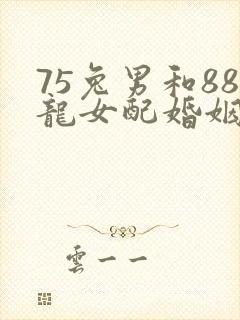 75兔男和88
龍女配婚姻
雲一一